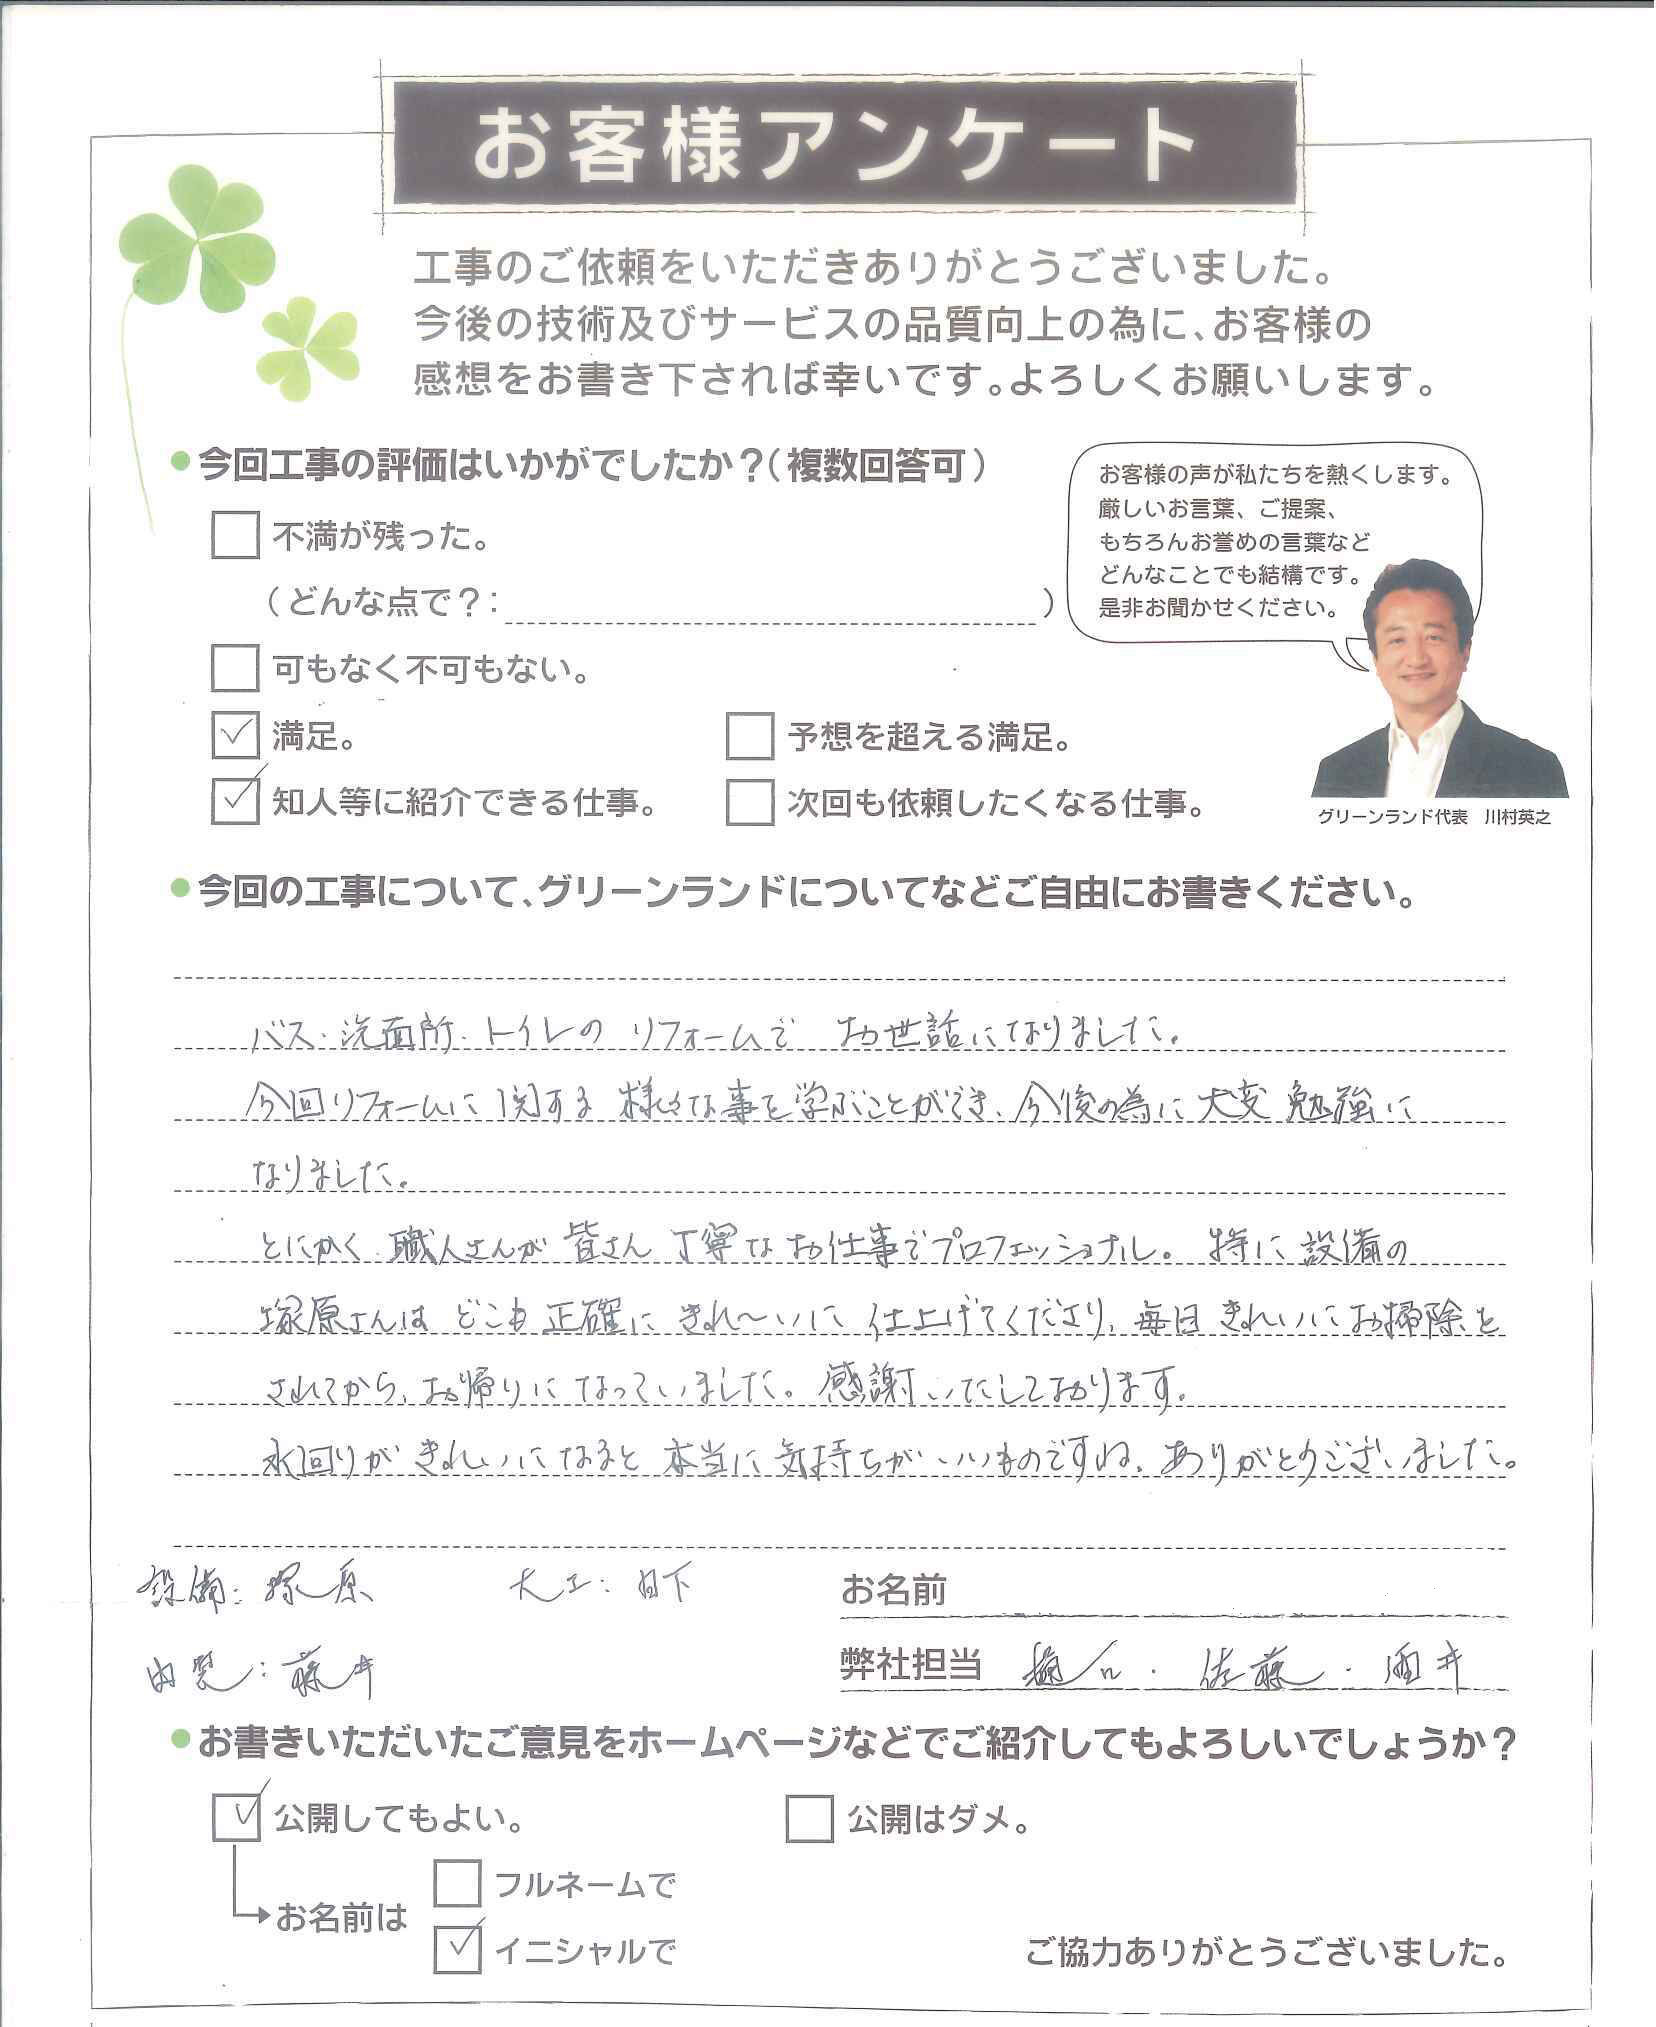 お客様アンケート
工事のご依頼をいただきありがとうございました。
今後の技術及びサービスの品質向上の為に、お客様の
感想をお書き下されば幸いです。よろしくお願いします。
今回工事の評価はいかがでしたか？（複数回答可）
不満が残った。
（どんな点で？：　）
可もなく不可もない。
満足。
予想を超える満足。
知人等に紹介できる仕事。
次回も依頼したくなる仕事。
お客様の声が私たちを熱くします。
厳しいお言葉、ご提案、
もちろんお誉めの言葉など
どんなことでも結構です。
是非お聞かせください。
グリーンランド代表　川村英之
今回の工事について、グリーンランドについてなどご自由にお書きください。
バス・洗面所・トイレの リフォームで お世話になりました。
今回リフォームに関する 様々な事を学ぶことができ、今後の為に大変 勉強に
なりました。
とにかく 職人さんが 皆さん 丁寧なお仕事でプロフェッショナル。特に 設備の
塚原さんは どこも 正確に きれ〜いに 仕上げてくださり、毎日 きれいにお掃除を
されてから、お帰りになっていました。感謝いたしております。
水回りが きれいになると 本当に 気持ちが いいものですね。ありがとうございました。
設備：塚原 大工：日下
内装：藤井
お名前
弊社担当 樋口・佐藤・酒井
お書きいただいたご意見をホームページなどでご紹介してもよろしいでしょうか？
公開してもよい。
公開はダメ。
お名前は
フルネームで
イニシャルで
ご協力ありがとうございました。